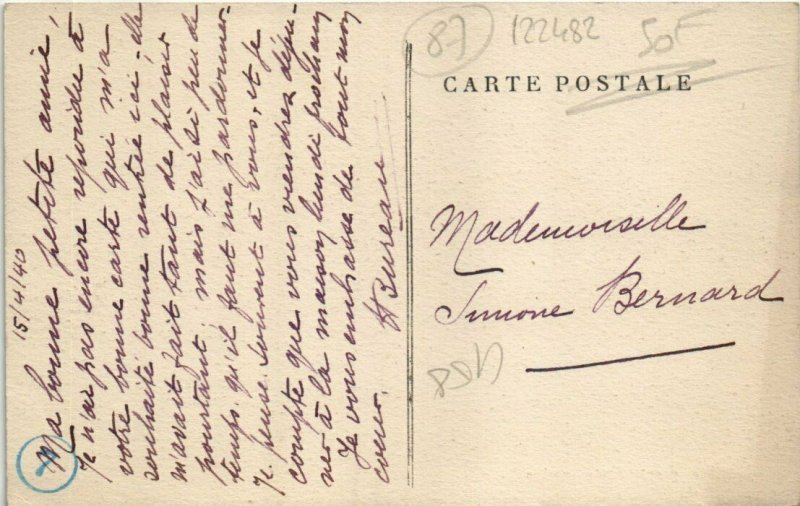 15/4/40
Ma bonne petite amie,
Je n'ai pas encore répondu à
votre bonne carte qui m'a
souhaité bonne rentrée ici. elle
m'avait fait tant de plaisir
pourtant; mais j'ai si peu de
temps qu'il faut me pardonner.
Je pense souvent à vous, et je
compte que vous viendrez déjeu-
ner à la maison lundi prochain
Je vous embrasse de tout mon
cœur.
Bureau
87
122482
50F
CARTE POSTALE
Mademoiselle
Simone Bernard